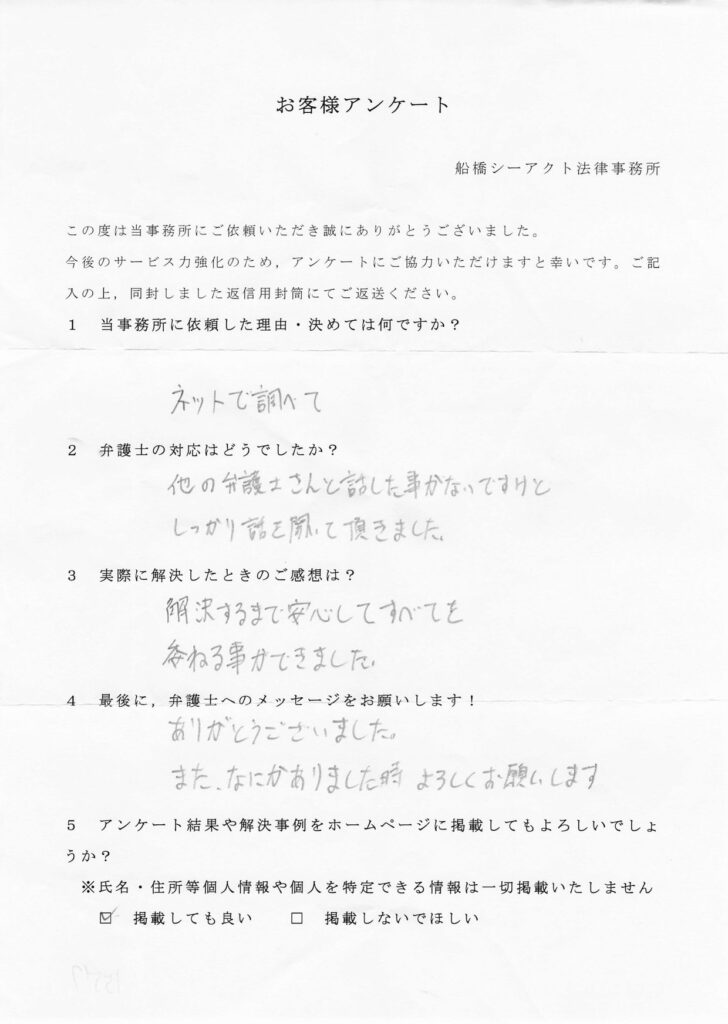 お客様アンケート
船橋シーアクト法律事務所
この度は当事務所にご依頼いただき誠にありがとうございました。
今後のサービス力強化のため，アンケートにご協力いただけますと幸いです。ご記
入の上，同封しました返信用封筒にてご返送ください。
1　当事務所に依頼した理由・決めては何ですか？
ネットで調べて
2　弁護士の対応はどうでしたか？
他の弁護士さんと話した事がないですけど
しっかり話を聞いて頂きました。
3　実際に解決したときのご感想は？
解決するまで安心してすべてを
委ねる事ができました。
4　最後に，弁護士へのメッセージをお願いします！
ありがとうございました。
また、なにかありました時 よろしくお願いします
5　アンケート結果や解決事例をホームページに掲載してもよろしいでしょ
うか？
※氏名・住所等個人情報や個人を特定できる情報は一切掲載いたしません
☑　掲載しても良い　　□　掲載しないでほしい